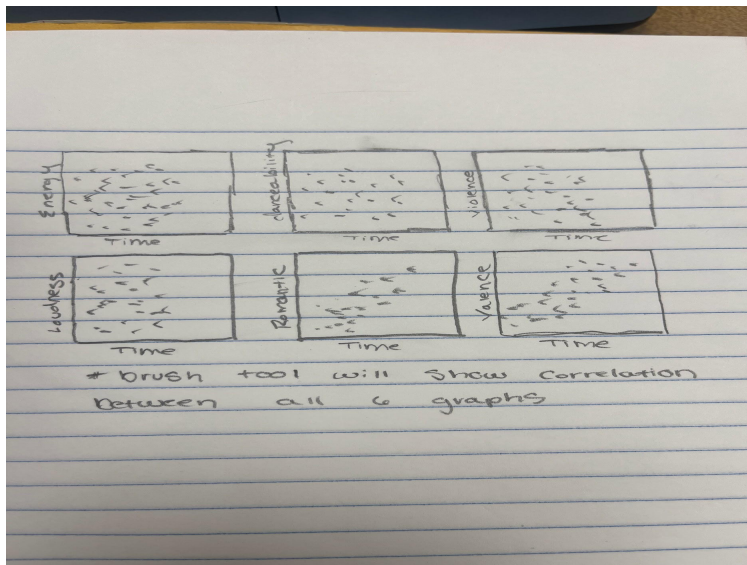 Energy
Time
danceability
Time
violence
Time
Loudness
Time
Romantic
Time
Valence
Time
* brush tool will show correlation
between all 6 graphs